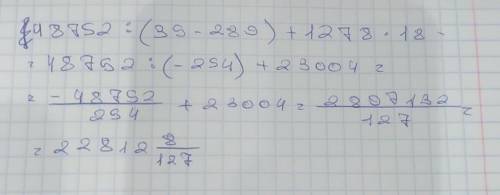 48752 : (35 - 289) + 1278 · 18 -
= 48752 : (-254) + 23004 =
= \frac{-48752}{254} + 23004 = \frac{2897132}{127} =
= 22812 \frac{8}{127}